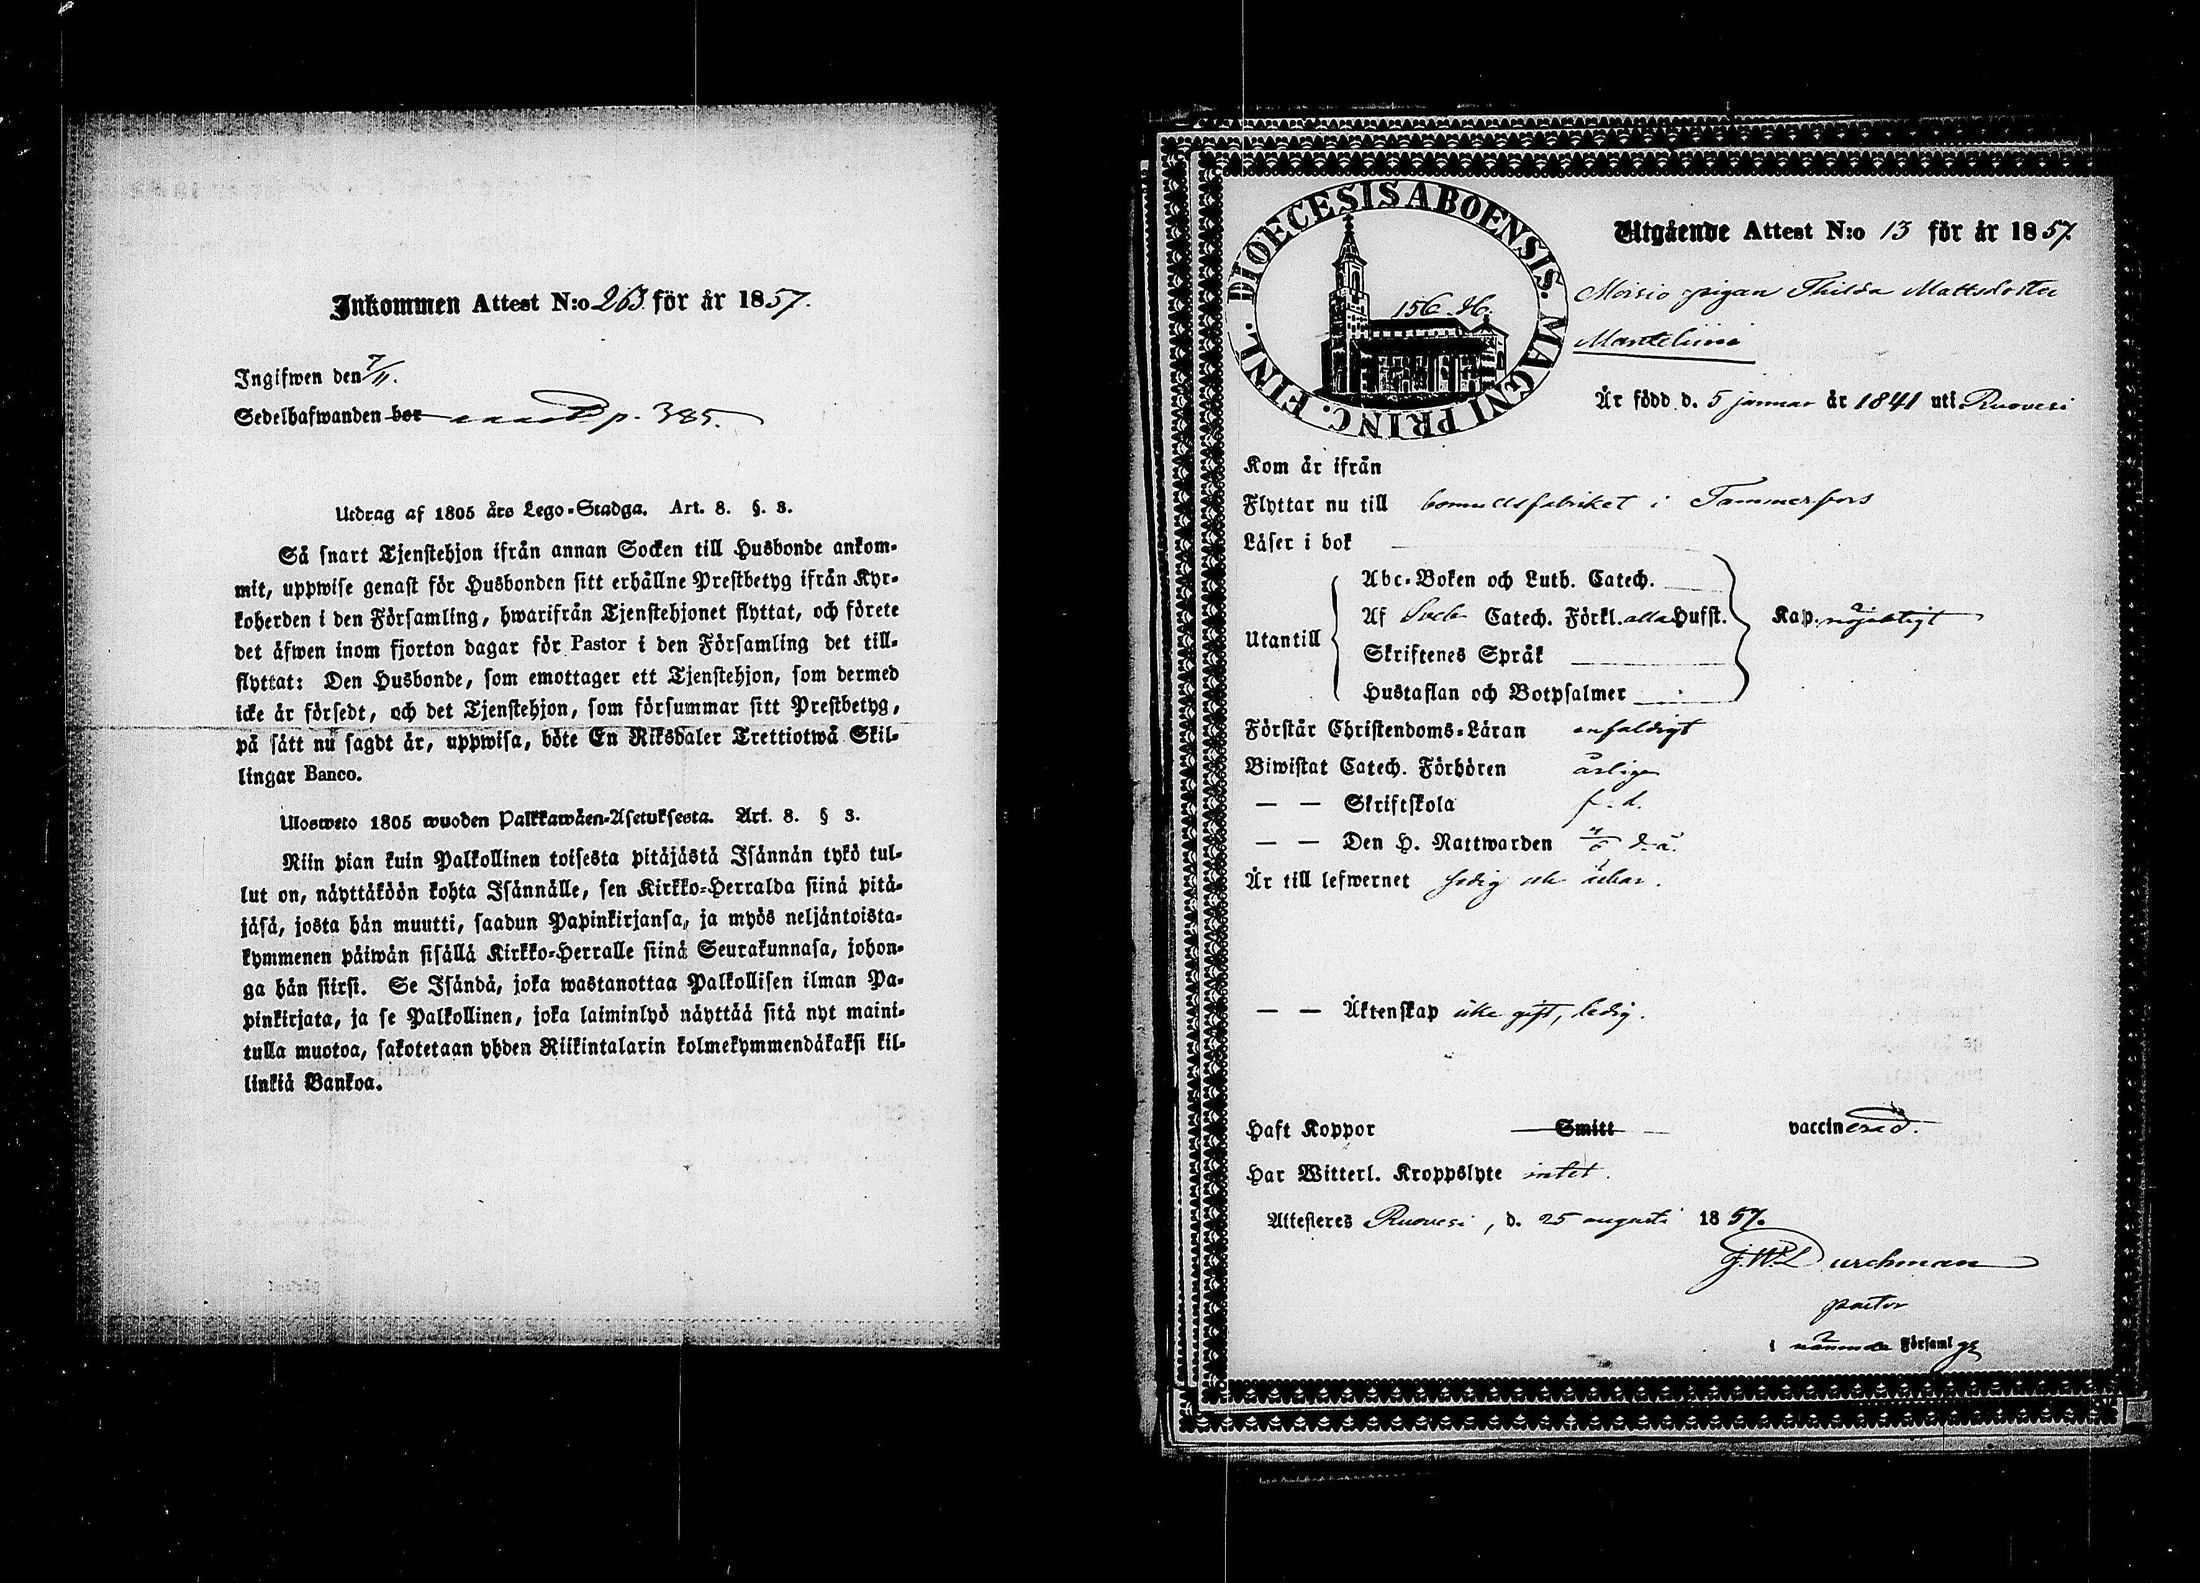 Inkommen Attest N:o 263 för år 1857.
Ingifwen den 7/11.
Sedelhafwanden bor p. 385.
Utdrag af 1805 års Lego-Stadga. Art. 8. §. 3.
Så snart Tjenstehjon ifrån annan Socken till Husbonde ankom-
mit, uppwise genast för Husbonden sitt erhållne Prestbetyg ifrån Kyr-
koherden i den Församling, hwarifrån Tjenstehjonet flyttat, och förete
det äfwen inom fjorton dagar för Pastor i den Församling det till-
flyttat: Den Husbonde, som emottager ett Tjenstehjon, som dermed
icke är försedt, och det Tjenstehjon, som försummar sitt Prestbetyg,
på sätt nu sagdt är, uppwisa, böte En Riksdaler Trettiotwå Skil-
lingar Banco.
Ulosweto 1805 wuoden Palkkawäen-Asetuksesta. Art. 8. § 3.
Niin pian kuin Palkollinen toisesta pitäjästä Isännän tykö tul-
lut on, näyttäköön kohta Isännälle, sen Kirkko-Herralda siinä pitä-
jäsä, josta hän muutti, saadun Papinkirjansa, ja myös neljäntoista-
kymmenen päiwän sisällä Kirkko-Herralle siinä Seurakunnasa, johon-
ga hän siirsi. Se Isändä, joka wastanottaa Palkollisen ilman Pa-
pinkirjata, ja se Palkollinen, joka laiminlyö näyttää sitä nyt maini-
tulla muotoa, sakotetaan yhden Riikintalarin kolmekymmendäkaksi kil-
linkiä Bankoa.
DIOECESIS ABOENSIS. MAGNI PRINC. FINL.
156. H.
Utgående Attest N:o 13 för år 1857.
Moisio pigan Thilda Mattsdotter
Mantelinie
Är född d. 5 januar år 1841 uti Ruovesi
Kom år ifrån
Flyttar nu till bomullsfabriket i Tammerfors
Läser i bok
Utantill
Abc-Boken och Luth. Catech.
Af Sveb. Catech. Förkl. alla Hufst.
Skriftenes Språk
Hustaflan och Botpsalmer
Kap. nöjaktigt
Förstår Christendoms-Läran enfaldigt
Biwistat Catech. Förhören årligen
— — Skriftskola f. d.
— — Den H. Nattwarden d. å.
Är till lefwernet sedig och ärbar.
— — Äktenskap icke gift, ledig.
Haft Koppor Smitt vaccinerad.
Har Witterl. Kroppslyte intet.
Attesteres Ruovesi, d. 25 augusti 1857.
J. W. Durchman
pastor
i nämnde Församlg